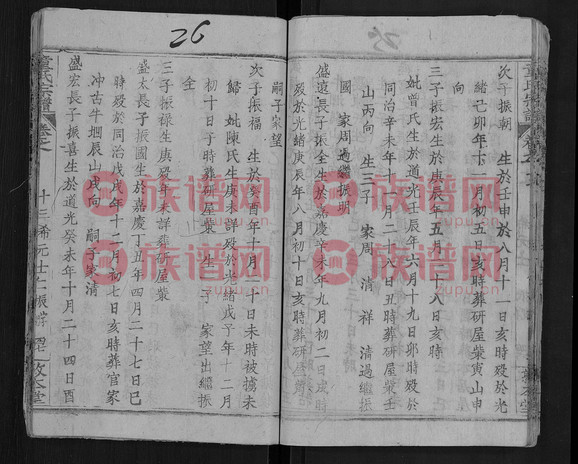 26
次子振朝 生於壬申於八月十一日亥時歿於光
緒己卯年十一月初五日亥時葬研屋柴寅山申
向
三子振宏生於庚辰年五月十八日亥時
妣曾氏生於道光壬辰年六月十九日卯時歿於
同治辛未年十二月二十八日丑時葬研屋柴壬
山丙向 生三子 家周 清祥 清過繼振
國 家周過繼振明
盛遠長子振全生於嘉慶辛未年九月初二日戌時
歿於光緒庚辰年八月初十日亥時葬研屋
嗣子家望
次子振福 生於癸酉年十月二十日未時被擄未
歸 妣陳氏生庚未詳歿於光緒戊子年十二月
初十日子時葬研屋柴 生一子 家望出繼振
全
三子振祿生庚歿時未詳葬研屋柴
盛太長子振國生於嘉慶丁丑年四月二十七日巳
時歿於同治戊戌年十二月初七日亥時葬官家
冲古牛堌辰山戌向 嗣子家清
盛宏長子振喜生於道光癸未年十月二十四日酉
童氏宗譜 卷之
十三希元士仁振浮
敦本堂
族谱网